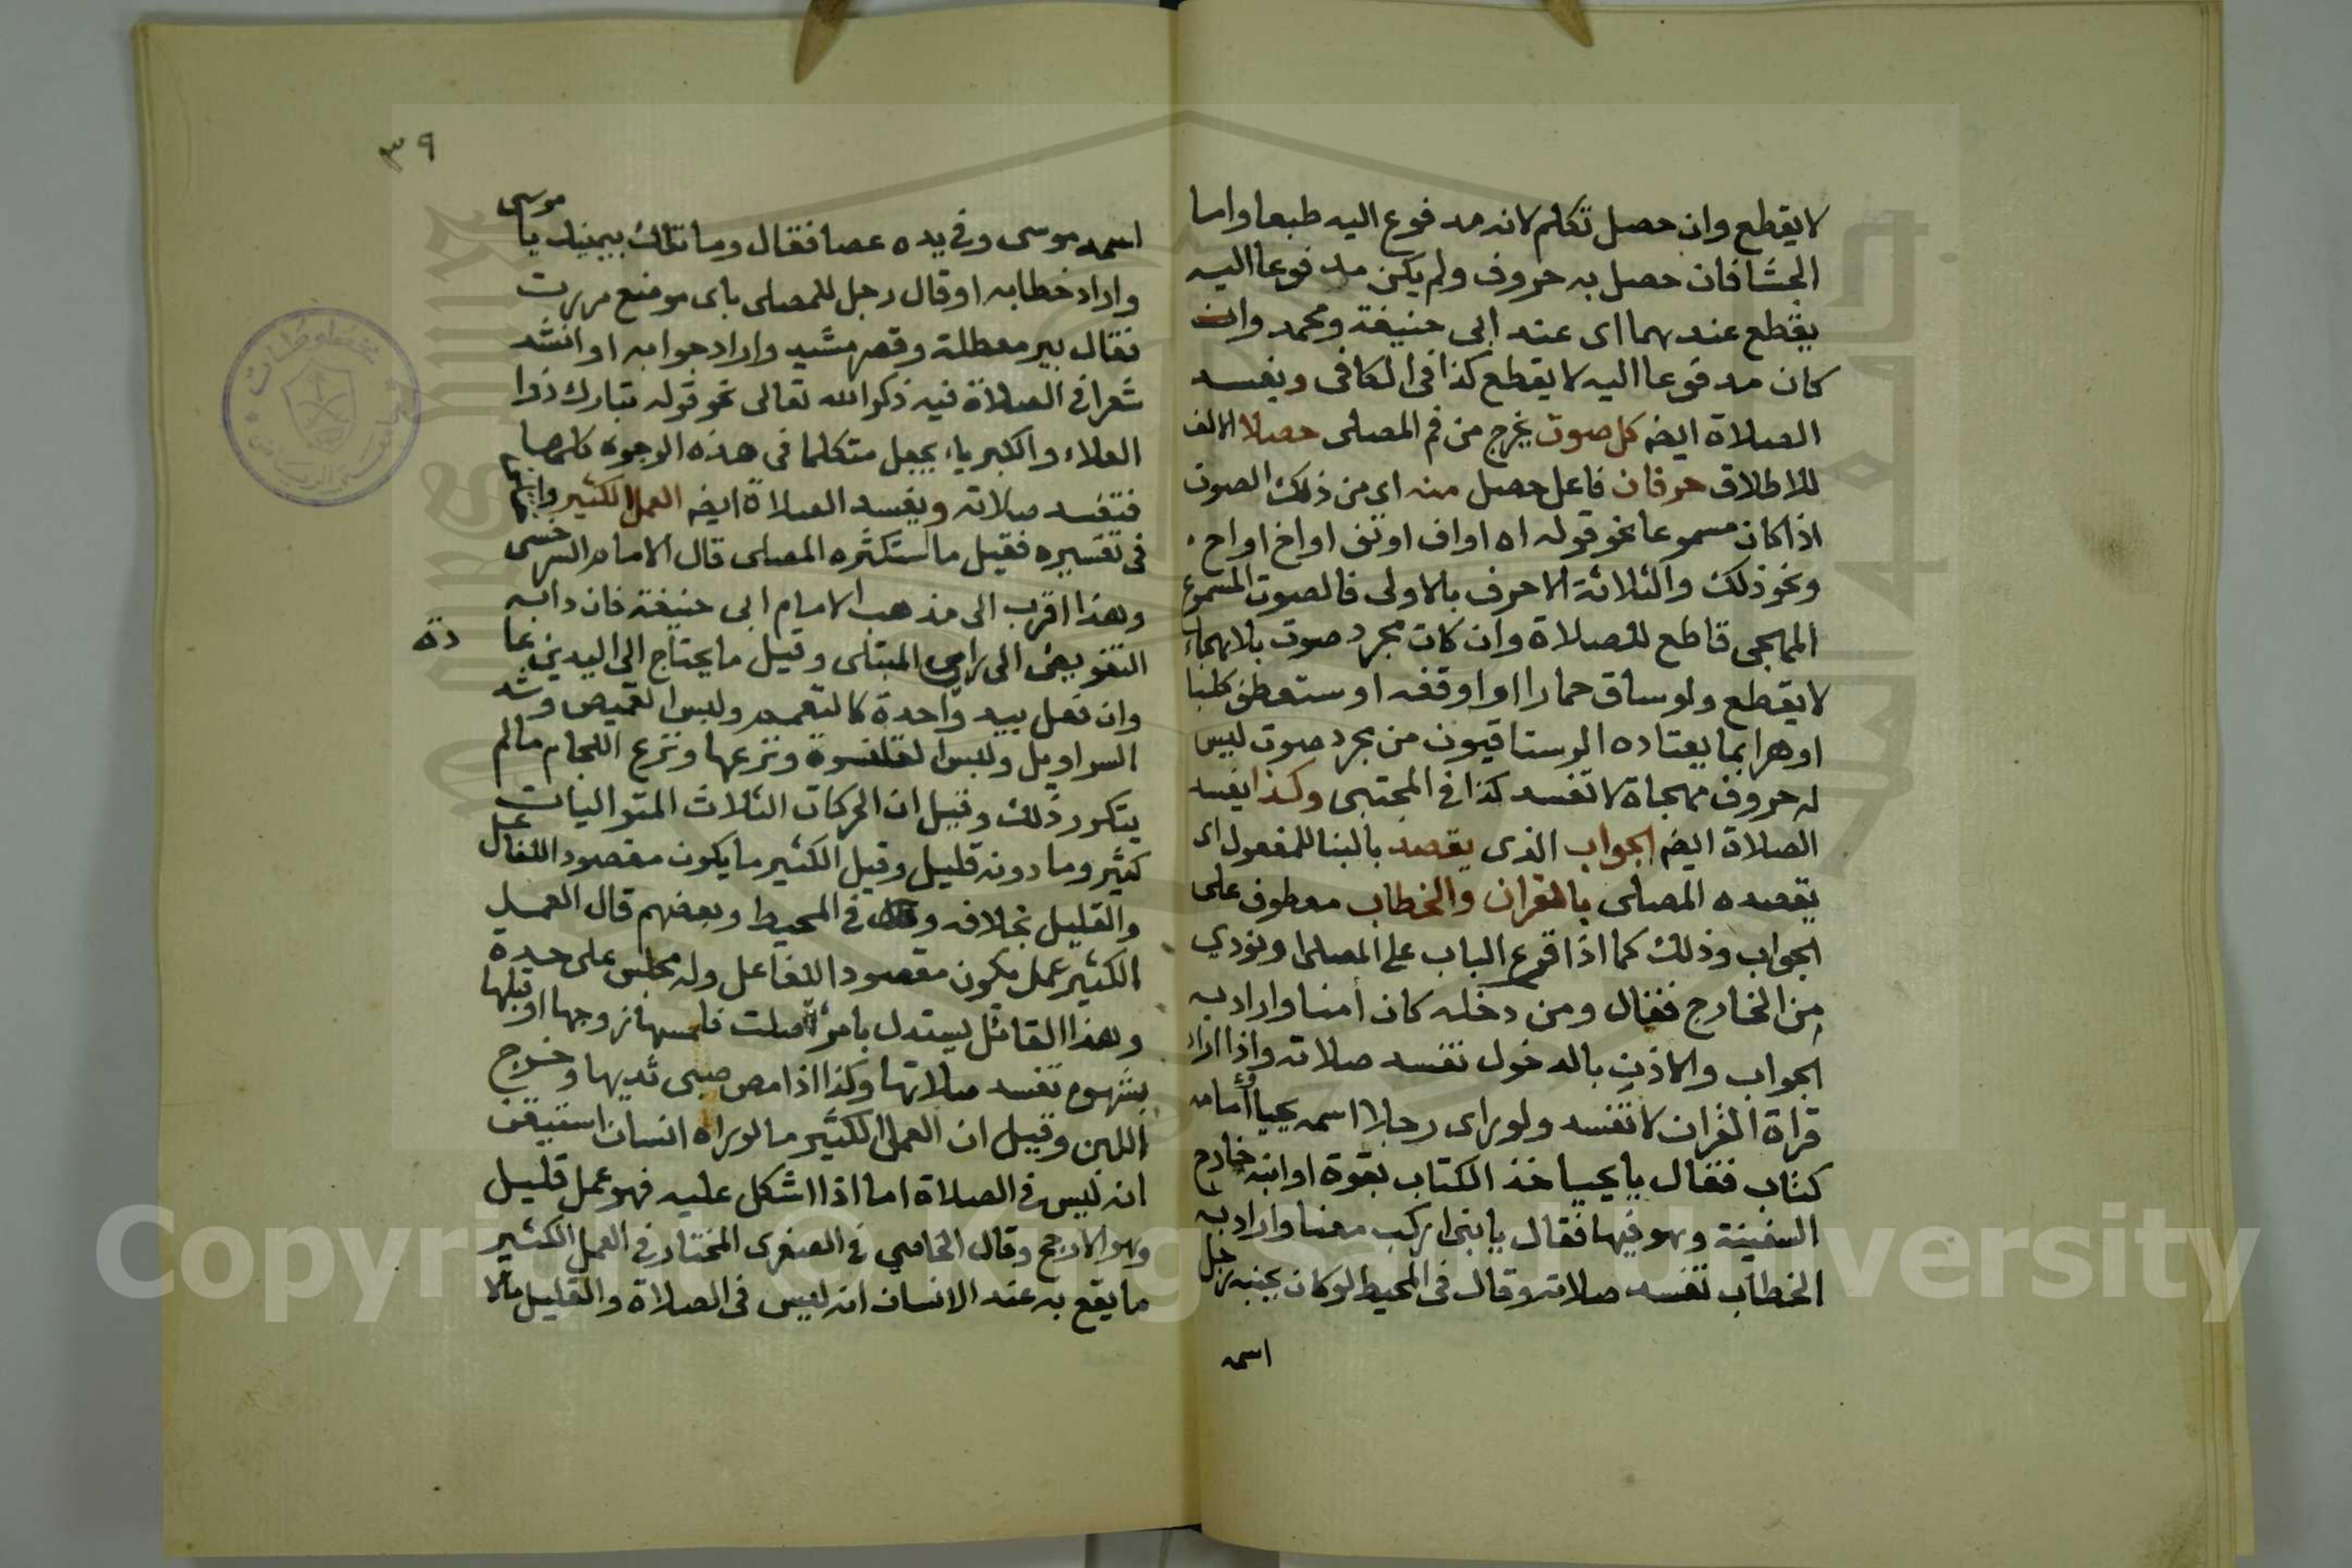 لا يقطع وان حصل تكلم لانه مدفوع اليه طبعا واما
الجشا فان حصل به حروف ولم يكن مدفوعا اليه
يقطع عندهما اى عند ابى حنيفة ومحمد وان
كان مدفوعا اليه لا يقطع كذا فى الكافى ويفسد
الصلاة ايضه كل صوت يخرج من فم المصلى حصلا الالف
للاطلاق حرفان فاعل حصل منه اى من ذلك الصوت
اذا كان مسموعا نحو قوله اه او اف او تف او اخ او اح
ونحو ذلك والثلاثة الاحرف بالاولى فالصوت المسموع
المهجى قاطع للصلاة وان كان مجرد صوت بلا تهجاء
لا يقطع ولو ساق حمارا او اوقفه او ستعطف كلبا
او هرا بما يعتاده الرستاقيون من مجرد صوت ليس
له حروف مهجاة لا تفسد كذا فى المجتبى وكذا يفسد
الصلاة ايضه الجواب الذى يقصد بالبنا للمفعول اى
يقصده المصلى بالقران والخطاب معطوف على
الجواب وذلك كما اذا قرع الباب على المصلى او نودي
من الخارج فقال ومن دخله كان أمنا واراد به
الجواب والاذن بالدخول تفسد صلاته واذا اراد
قراة القران لا تفسد ولو راى رجلا اسمه يحيا وأمامه
كتاب فقال يا يحيا خذ الكتاب بقوة او ابنه خارج
السفينة وهو فيها فقال يا بنى اركب معنا واراد به
الخطاب تفسد صلاته وقال فى المحيط لو كان بجنبه رجل
اسمه
٣٩
اسمه موسى وفى يده عصا فقال وما تلك بيمينك يا موسى
واراد خطابه او قال رجل للمصلى باى موضع مررت
فقال بير معطلة وقصر مشيد واراد جوابه او انشد
شعرا فى الصلاة فيه ذكر الله تعالى نحو قوله تبارك ذوا
العلاء والكبرياء يجعل متكلما فى هذه الوجوه كلها
فتفسد صلاته ويفسد الصلاة ايضه العمل الكثير
فى تفسيره فقيل ما استكثره المصلى قال الامام السرخسى
وهذا اقرب الى مذهب الامام ابى حنيفة فان دابه
التفويض الى راى المبتلى وقيل ما يحتاج الى اليدين عا
دة
وان فعل بيد واحدة كالتعمم ولبس القميص وشد
السراويل ولبس القلنسوة ونزعها ونزع اللجام ما لم
يتكرر ذلك وقيل ان الحركات الثلاث المتواليات
كثير وما دونه قليل وقيل الكثير ما يكون مقصودا للفاعل
والقليل بخلافه فى المحيط وبعضهم قال العمل
الكثير عمل يكون مقصودا للفاعل وله مجلس على حدة
وهذا القائل يستدل بامرأة صلت فلمسها زوجها او قبلها
بشهوه تفسد صلاتها وكذا اذا مص صبى ثديها وخرج
اللبن وقيل ان العمل الكثير ما لو راه انسان استيقن
انه ليس فى الصلاة اما اذا اشكل عليه فهو عمل قليل
وهو الارجح وقال الخاصي فى الصغرى المختار فى العمل الكثير
ما يقع به عند الانسان انه ليس فى الصلاة والقليل ما لا